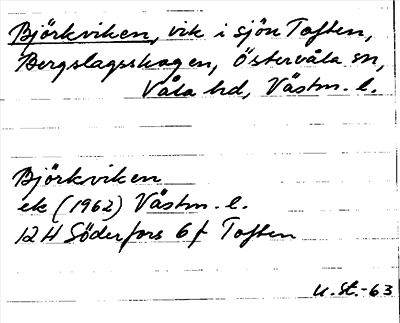 Björkviken, vik i sjön Toften,
Bergslagsskogen, Östervåla sn,
Våla hd, Västm. l.
Björkviken
ek (1962) Västm. l.
12H Söderfors 6f Toften
U. St. -63